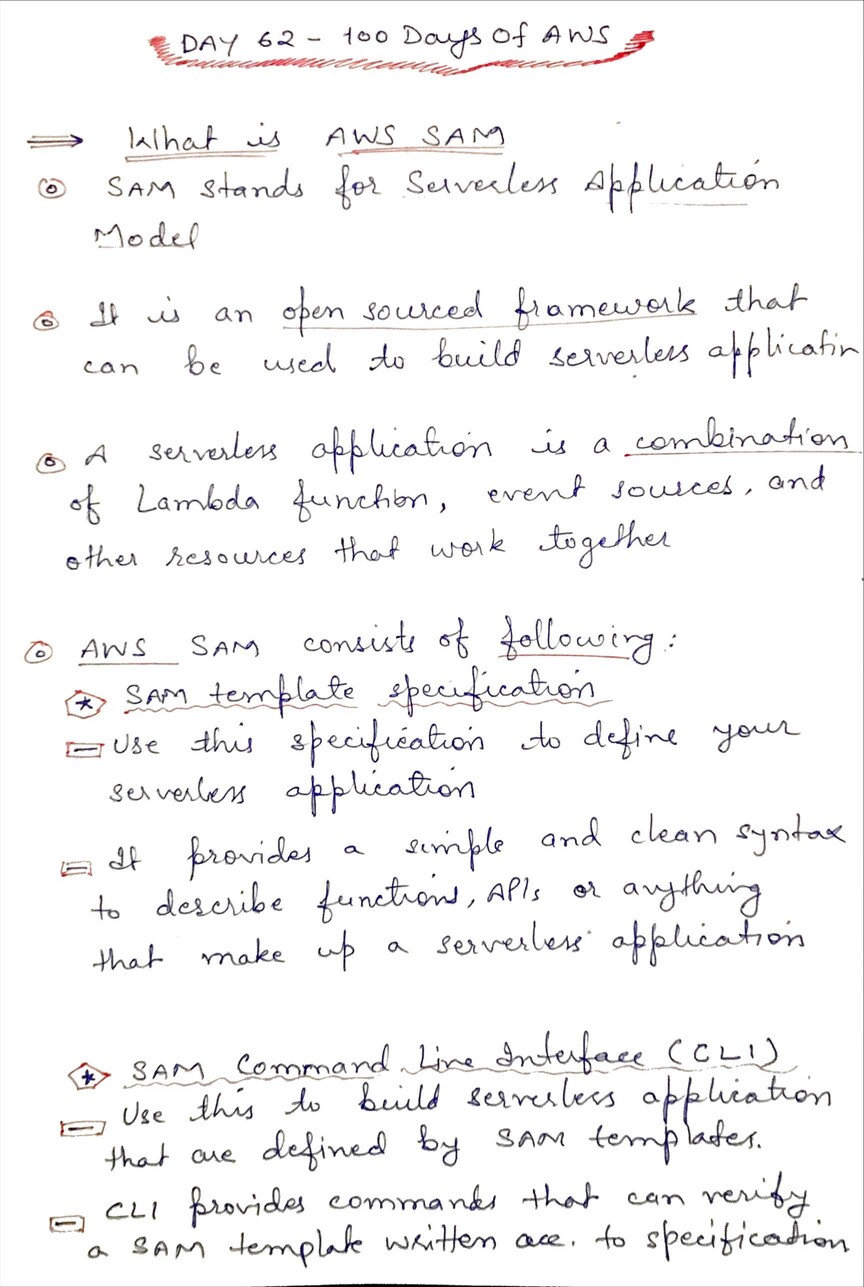 DAY 62 - 100 Days Of AWS
What is AWS SAM
SAM stands for Serverless Application
Model
It is an open sourced framework that
can be used to build serverless applicatin
A serverless application is a combination
of Lambda function, event sources, and
other resources that work together
AWS SAM consists of following:
SAM template specification
Use this specification to define your
serverless application
It provides a simple and clean syntax
to describe functions, APIs or anything
that make up a serverless application
SAM Command Line Interface (CLI)
Use this to build serverless application
that are defined by SAM templates.
CLI provides commands that can verify
a SAM template written acc. to specification